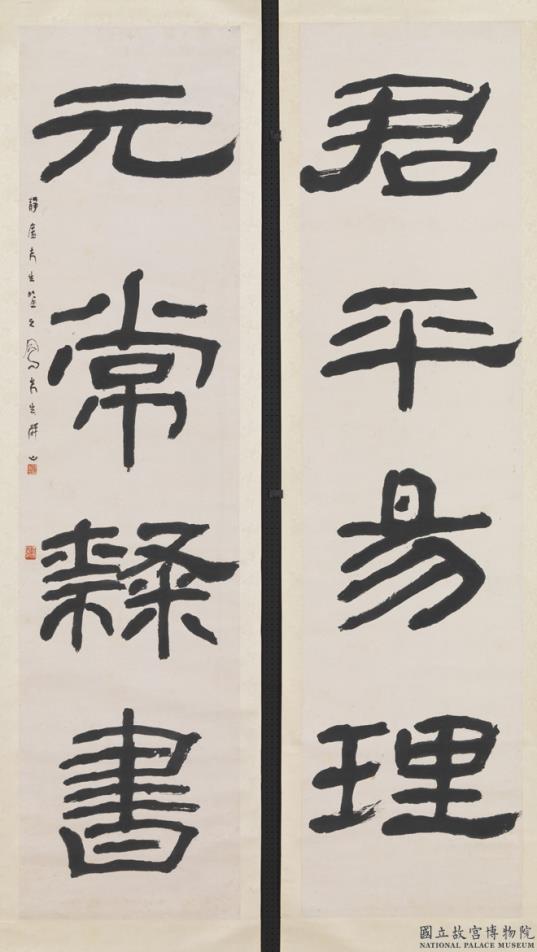 君平易理
元常隸書
國立故宮博物院
NATIONAL PALACE MUSEUM